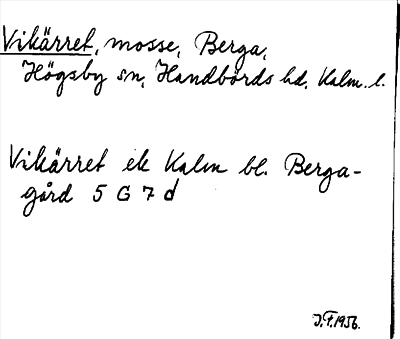 Vikärret, mosse, Berga,
Högsby sn, Handbörds hd, Kalm. l.
Vikärret ek Kalm bl. Berga-
gård 5 G 7 d
J.F. 1956.